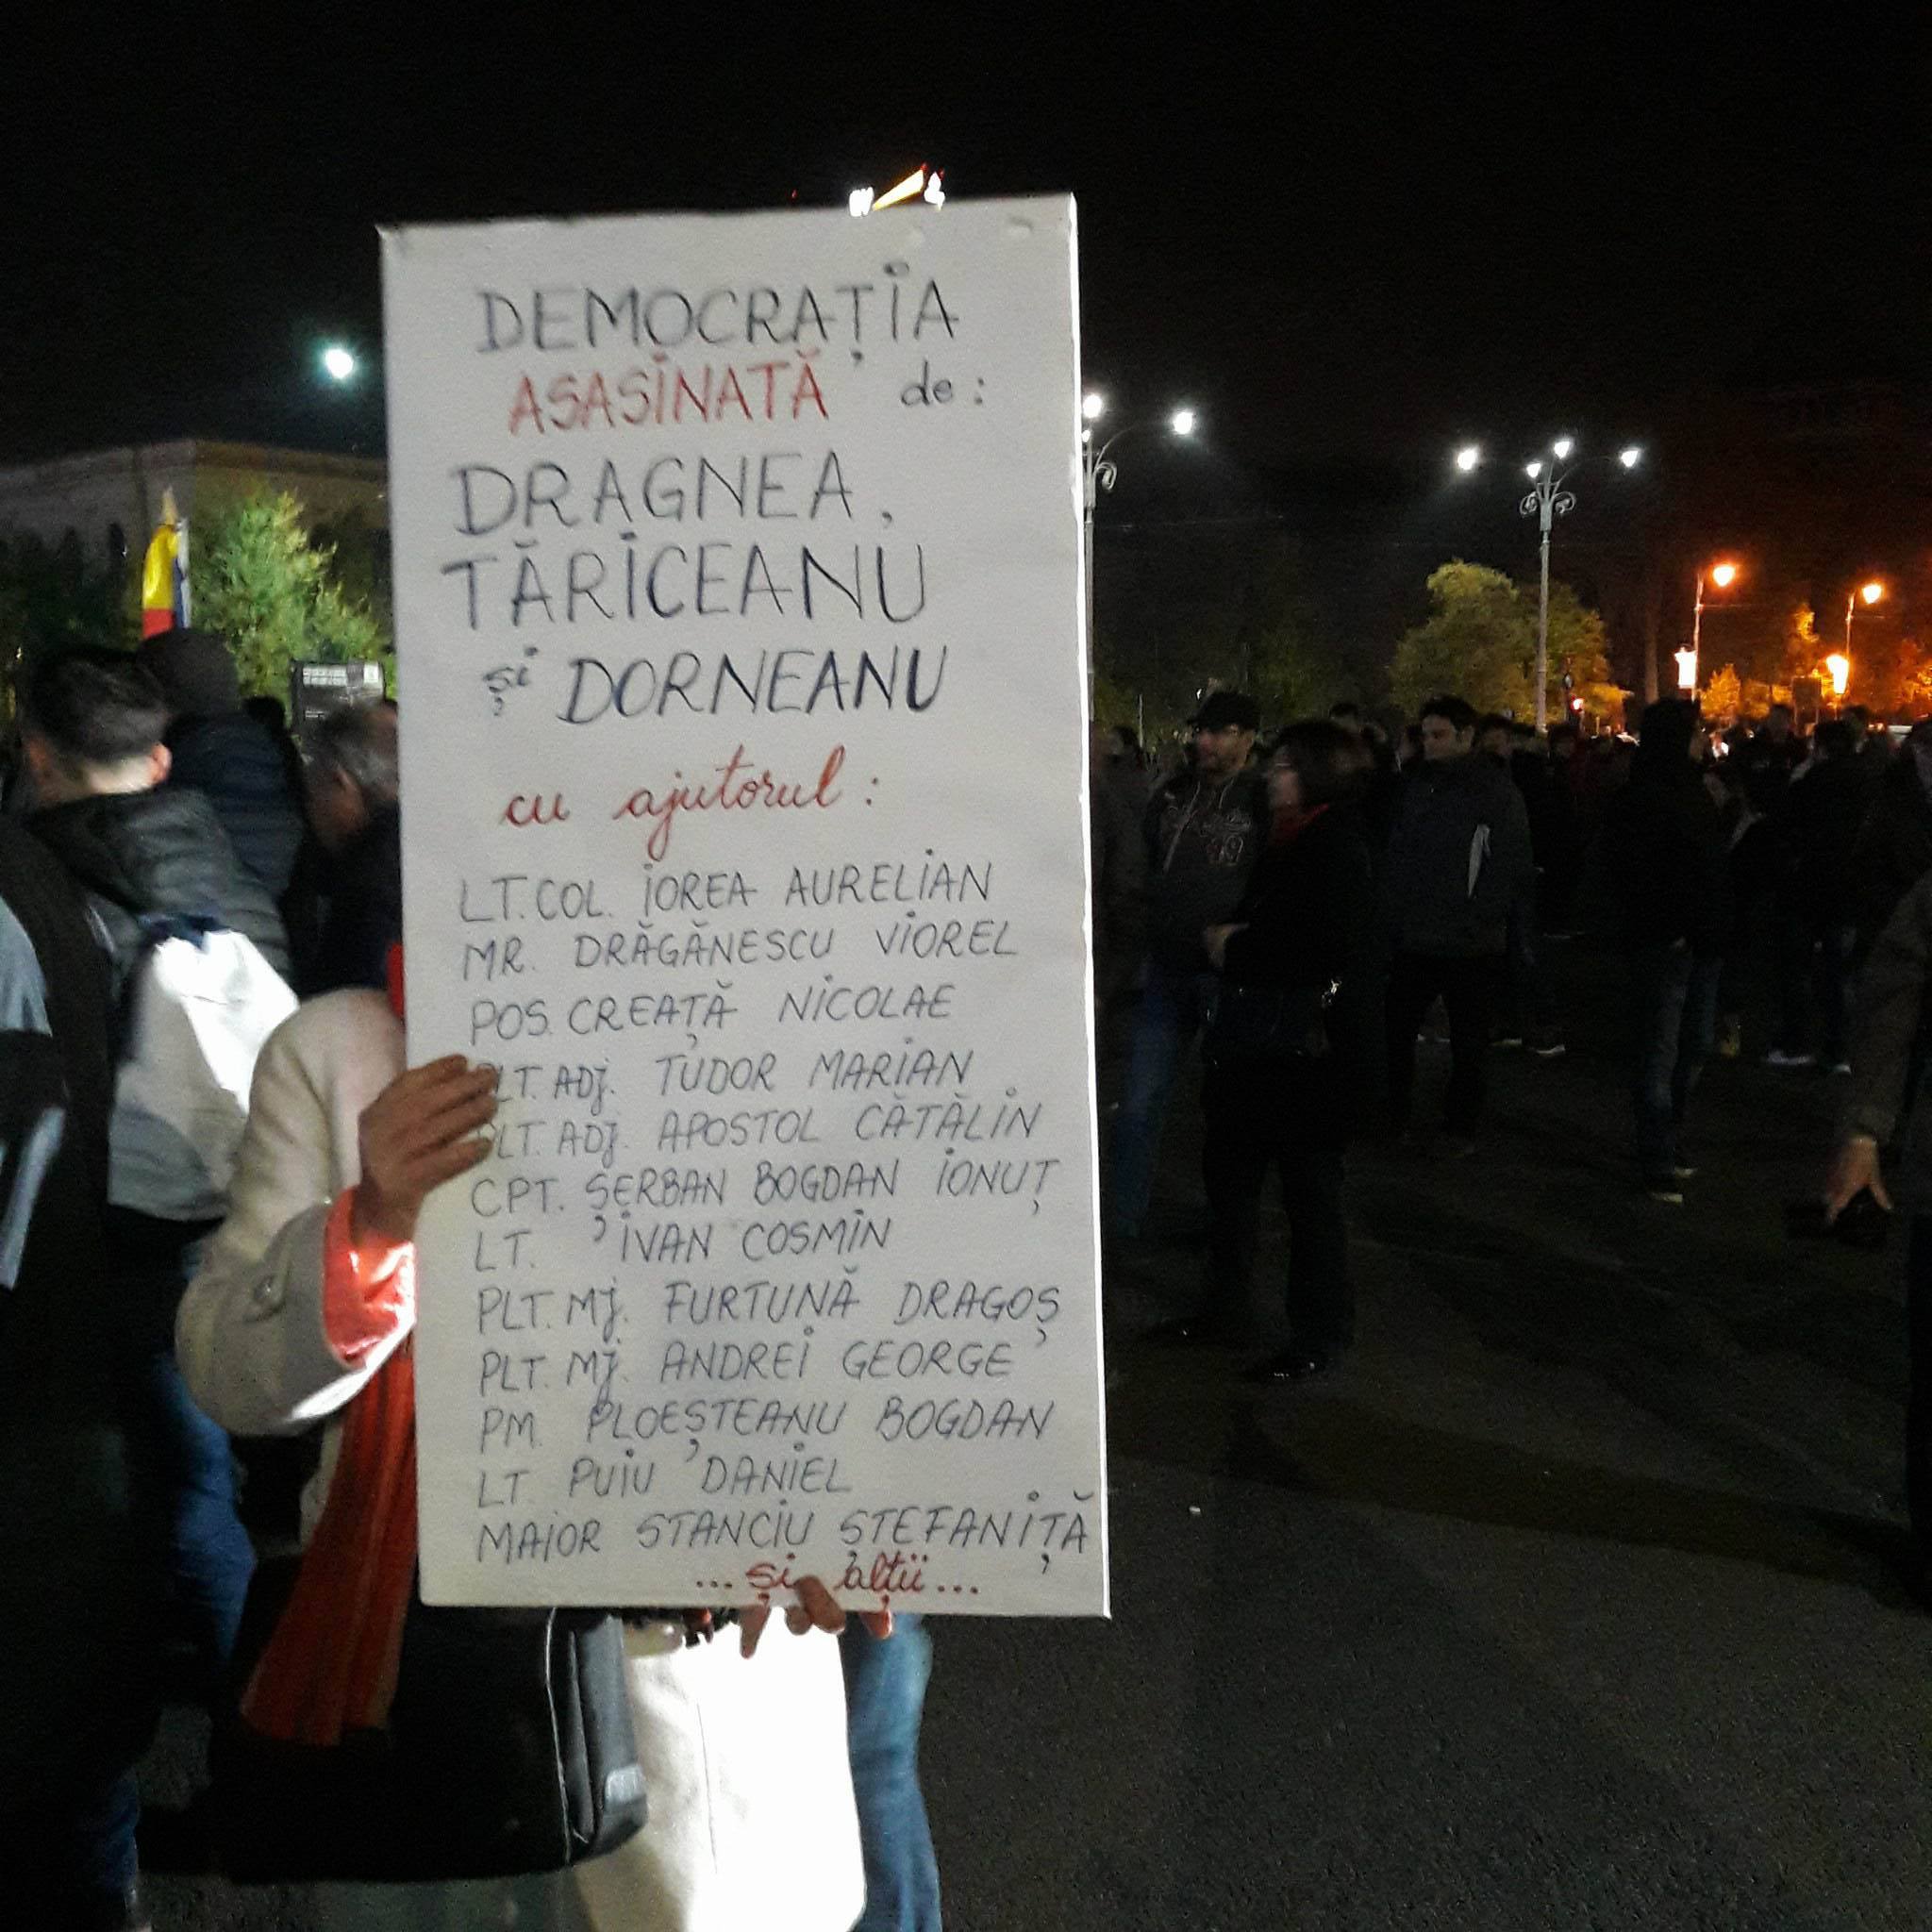 DEMOCRAȚIA
ASASINATĂ de:
DRAGNEA,
TĂRICEANU
și DORNEANU
cu ajutorul:
LT. COL. IOREA AURELIAN
MR. DRĂGĂNESCU VIOREL
POS. CREAȚĂ NICOLAE
PLT. ADJ. TUDOR MARIAN
PLT. ADJ. APOSTOL CĂTĂLIN
CPT. ȘERBAN BOGDAN IONUȚ
LT. IVAN COSMIN
PLT. MJ. FURTUNĂ DRAGOȘ
PLT. MJ. ANDREI GEORGE
PM. PLOEȘTEANU BOGDAN
LT. PUIU DANIEL
MAIOR STANCIU ȘTEFANIȚĂ
... și alții...